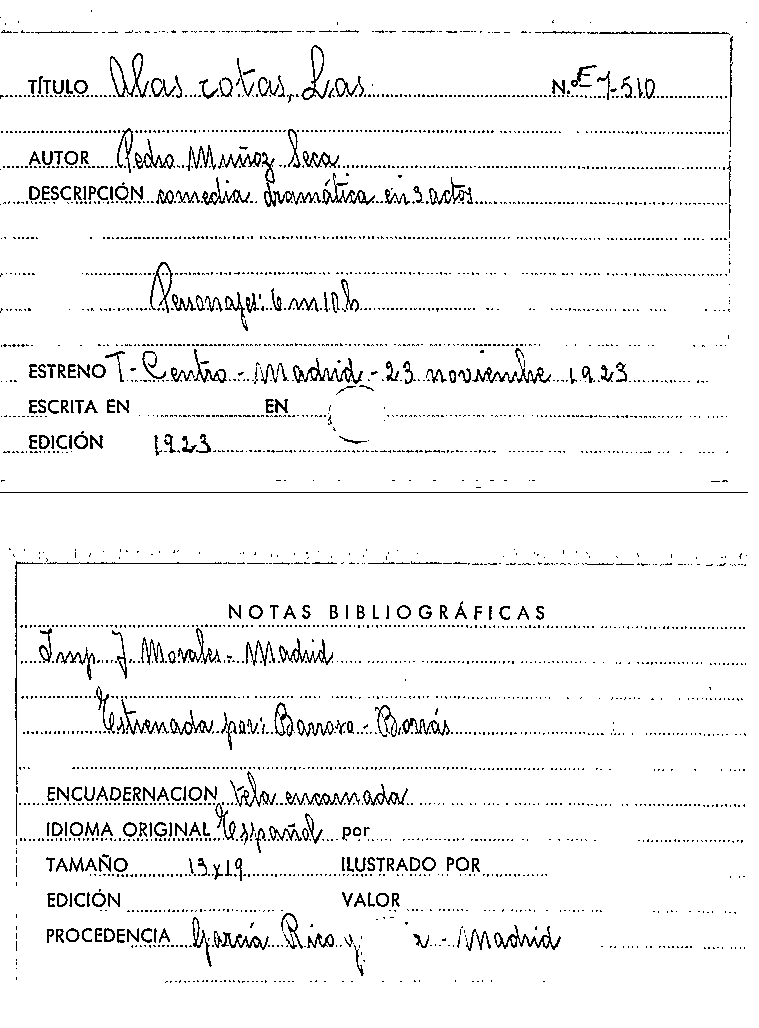 TÍTULO Alas rotas, Las N.º E-7-510
AUTOR Pedro Muñoz Seca
DESCRIPCIÓN comedia dramática en 3 actos
Personajes: 6 m 10 h
ESTRENO T- Centro - Madrid - 23 noviembre 1923
ESCRITA EN EN
EDICIÓN 1923
NOTAS BIBLIOGRÁFICAS
Imp. J. Morales - Madrid
Estrenada por: - Borrás
ENCUADERNACION tela encarnada
IDIOMA ORIGINAL Español por
TAMAÑO 13x19 ILUSTRADO POR
EDICIÓN VALOR
PROCEDENCIA García Rico y - Madrid